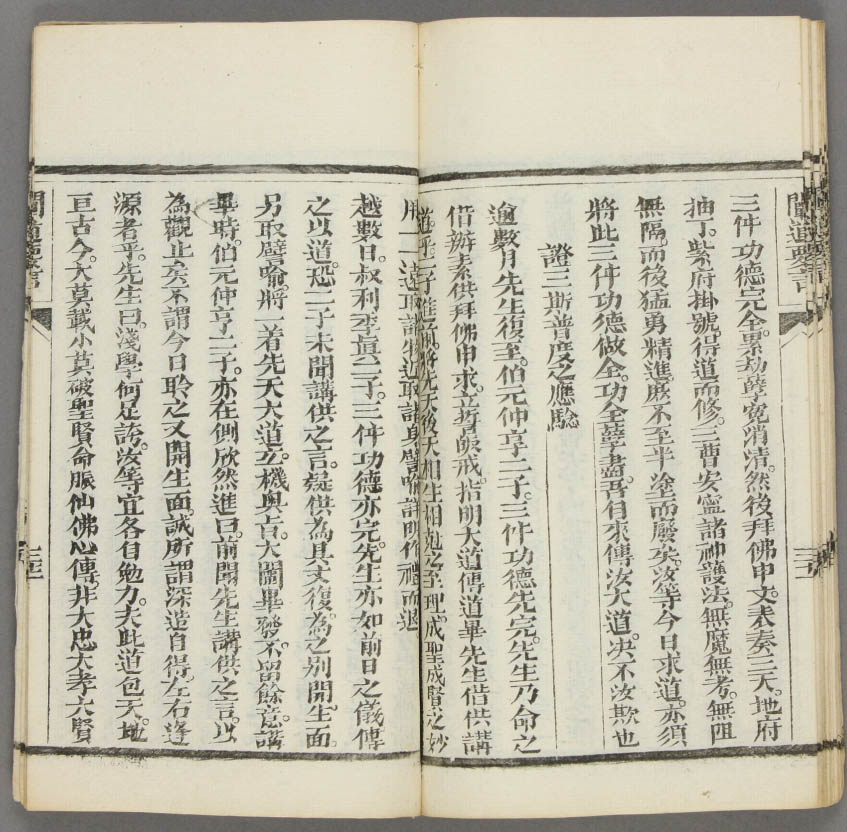 三件功德完全累劫孽寃消清然後拜佛申文表奏三天地府
抽丁紫府掛號得道而修三曹安寧諸神護法無魔無考無阻
無隔而後猛勇精進庶不至半塗而廢矣汝等今日求道亦須
將此三件功德做全功全孽盡吾自來傳汝大道决不汝欺也
證三斯普度之應騐
逾數月先生復至伯元仲亨二子三件功德先完先生乃命之
借辦素供拜佛申求立誓皈戒指明大道傳道畢先生借供講
道乎二子進前將先天後天相生相尅之至理成聖成賢之妙
用一一遠取諸物近取諸身譬喻詳明作禮而退
越數日叔利季貞二子三件功德亦完先生亦如前日之儀傳
之以道恐二子未聞講供之言疑供為具文復為之别開生面
另取譬喻將一着先天大道立機奥旨大闡畢發不留餘意講
畢時伯元仲亨二子亦在側欣然進曰前聞先生講供之言以
為觀止矣不謂今日聆之又開生面誠所謂深造自得左右逢
源者乎先生曰淺學何足誇汝等宜各自勉力夫此道包天地
亘古今大莫載小莫破聖賢命脈仙佛心傳非大忠大孝大賢